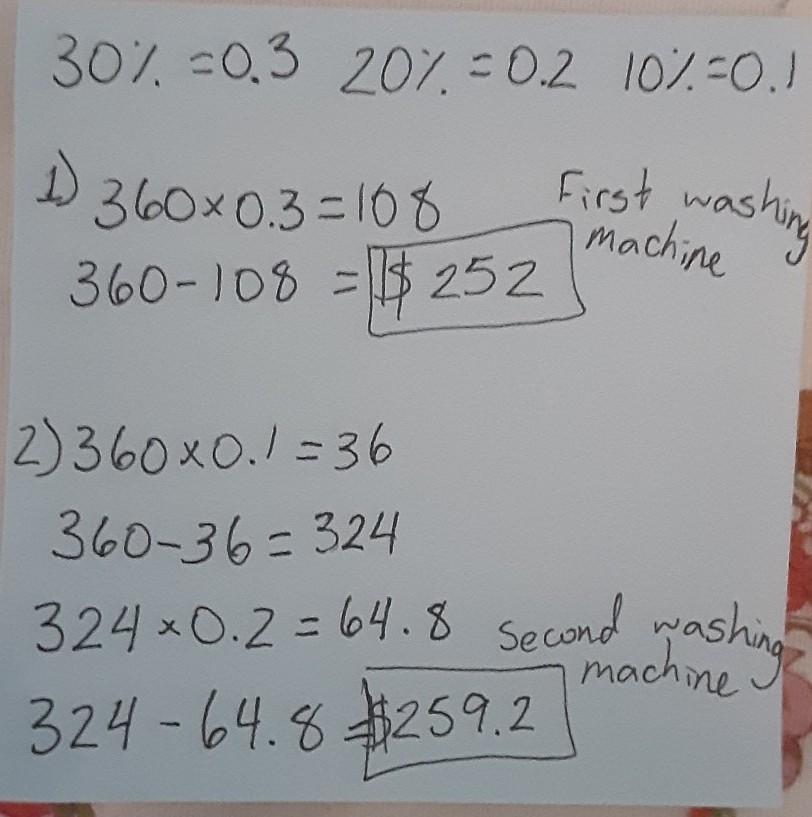 30% =0.3 20% =0.2 10%=0.1
1) 360×0.3=108
First washing
machine
360-108 = $252
2) 360×0.1=36
360-36= 324
324×0.2=64.8
Second washing
machine
324-64.8=$259.2